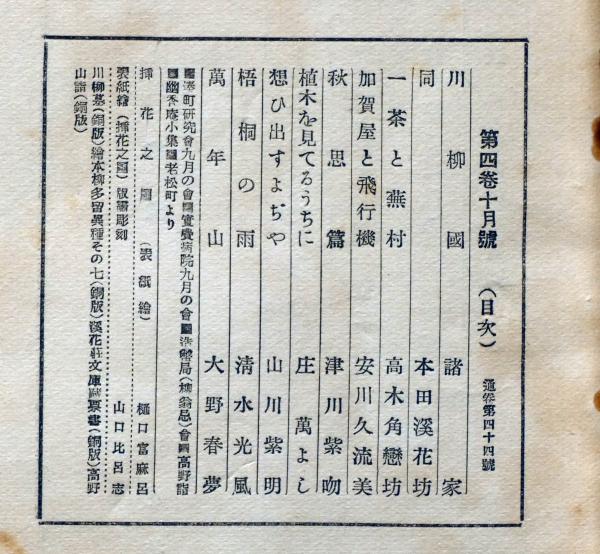 第四卷十月號 (目次) 通卷第四十四號
川柳國 諸家
同 本田溪花坊
一茶と蕪村 高木角戀坊
加賀屋と飛行機 安川久流美
秋思篇 津川紫吻
植木を見てるうちに 庄萬よし
想ひ出すよぢや 山川紫明
梧桐の雨 清水光風
萬年山 大野春夢
町研究會九月の會 病院九月の會 局(柳翁忌)會 高野詣
幽香庵小集 老松町より
挿花之圖 (表紙繪) 樋口富麻呂
表紙繪(挿花之圖)版畫彫刻 山口比呂志
川柳墓(銅版)繪本柳多留異種その七(銅版)溪花莊文庫藏票書(銅版)高野
山詣(銅版)